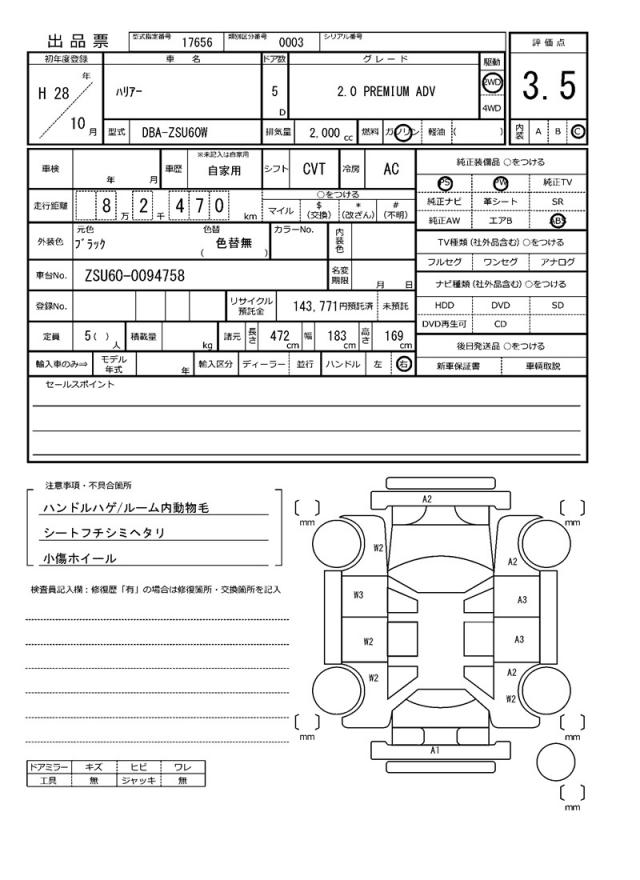 出品票
型式指定番号 17656 類別区分番号 0003 シリアル番号
評価点
3.5
初年度登録 車名 ドア数 グレード 駆動
H 28 年 10 月
ハリアー
5 D
2.0 PREMIUM ADV
2WD
4WD
型式 DBA-ZSU60W 排気量 2,000 cc 燃料 ガソリン 軽油 ( )
内装 A B C
車検 年 月 車歴 ※未記入は自家用 自家用 シフト CVT 冷房 AC
走行距離 8 万 2 千 4 7 0 km
○をつける
マイル $(交換) *(改ざん) #(不明)
外装色 元色 ブラック 色替 色替無 ( ) カラーNo. 内装色
車台No. ZSU60-0094758 名変期限 月 日
登録No. リサイクル預託金 143,771円預託済 未預託
定員 5( )人 積載量 kg 諸元 長さ 472 cm 幅 183 cm 高さ 169 cm
輸入車のみ⇒ モデル年式 年 輸入区分 ディーラー 並行 ハンドル 左 右
純正装備品 ○をつける
PS PW 純正TV
純正ナビ 革シート SR
純正AW エアB ABS
TV種類(社外品含む)○をつける
フルセグ ワンセグ アナログ
ナビ種類(社外品含む)○をつける
HDD DVD SD
DVD再生可 CD
後日発送品 ○をつける
新車保証書 車輌取説
セールスポイント
注意事項・不具合箇所
ハンドルハゲ/ルーム内動物毛
シートフチシミヘタリ
小傷ホイール
検査員記入欄：修復歴「有」の場合は修復箇所・交換箇所を記入
ドアミラー キズ ヒビ ワレ
工具 無 ジャッキ 無
A2
[ ] mm
[ ] mm
W2
A2
W3
A3
W2
A3
W2
A2
W2
[ ] mm
[ ] mm
A1
[ ] mm